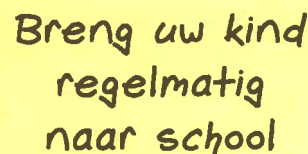 Breng uw kind
regelmatig
naar school